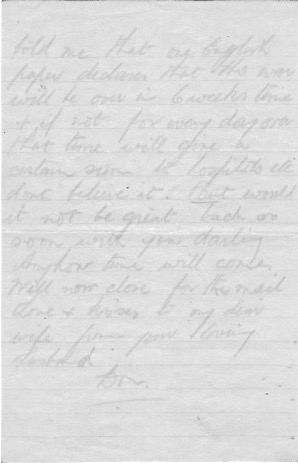 told me that one English
paper declares that the war
will be over in 6 weeks time
& if not for every day over
that time will give a
certain sum to hospitals etc
dont believe it. But would
it not be great back so
soon with you darling
Anyhow time will come
Will now close for the mail
love & kisses to my dear
wife from your loving
husband